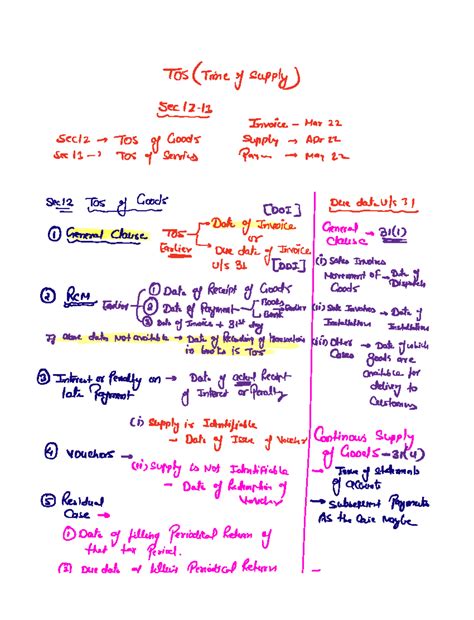 TOS (Time of Supply)
Sec 12-11
Invoice - Mar 22
Sec12 → TOS of Goods
Supply → Apr 22
Sec 11 → TOS of Services
Paym → May 22
Sec 12 TOS of Goods
① General Clause
TOS Earlier
→ Date of Invoice [DOI]
or
→ Due date of Invoice
U/s 31 [DDI]
② RCM
Earlier
① Date of Receipt of Goods
② Date of Payment
Books
Bank
Earlier
③ Date of Invoice + 31st day
If above dates Not available → Date of Recording of transaction
in books is TOS
③ Interest or Penalty on → Date of actual Receipt
late Payment
of Interest or Penalty
(i) Supply is Identifiable
- Date of Issue of Voucher
④ Vouchers →
(ii) Supply is Not Identifiable
- Date of Redemption of
Voucher
⑤ Residual
Case →
① Date of filling Periodical Return of
that tax Period.
Due date of filling Periodical Return
Due date U/s 31
General → 31(1)
Clause
(i) Sales Involves
Movement of → Date of
Goods Dispatch
(ii) Sale Involves → Date of
Installation Installation
(iii) Other → Date of which
Cases goods are
available for
delivery to
Customers
Continous Supply
of Goods - 31(4)
→ Issue of statements
of accounts
→ Subsequent Payments
As the Case Maybe